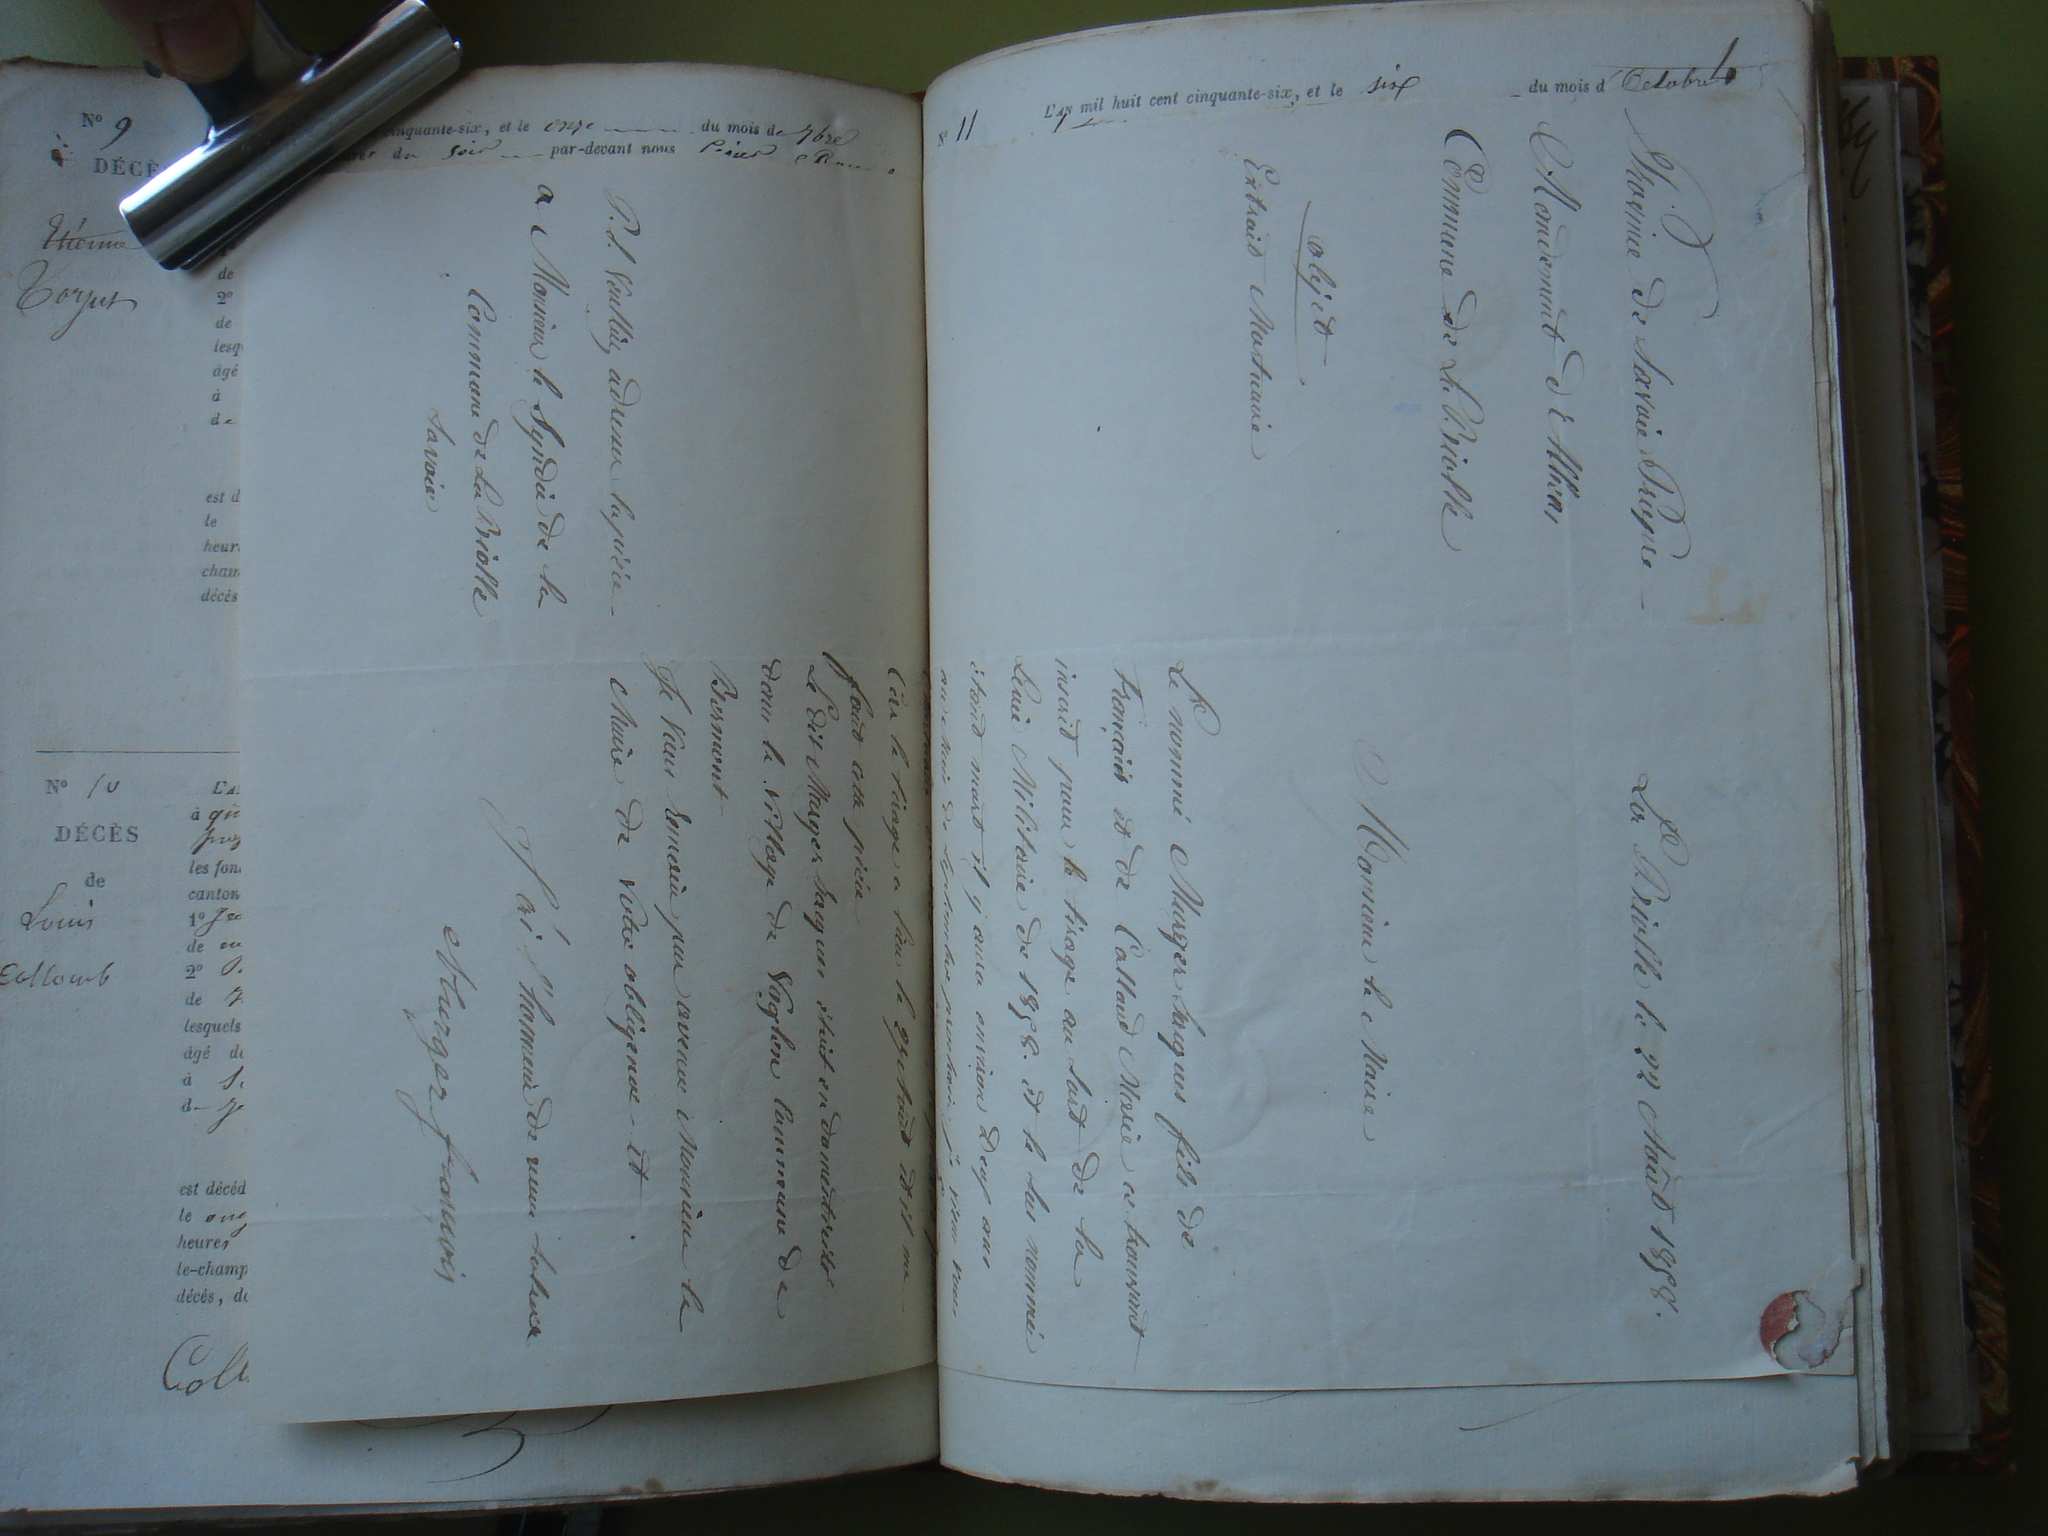 N° 9
DÉCÈ
Etienne
Torjus
cinquante-six, et le onze du mois de 9bre
du soir par-devant nous
de
2°
de
lesq
âgé
à
de
est d
le
heur
cham
décés
N° 10
DÉCÈS
de
Louis
Collomb
L'A
à
les fon
canton
1°
de
2°
de
lesquels
âgé de
à
de
est décéd
le
heures
le-champ
décès, de
Coll
N° 11
L'AN mil huit cent cinquante-six, et le six du mois d'Octobre
Province de Savoie Propre
Mandement d'Albens
Commune de La Biolle
objet
Extrait Mortuaire
La Biolle le 22 Août 1858.
Monsieur le Maire
Le nommé Murger Jacques fils de
François et de Calloud Marie se trouvant
inscrit pour le tirage au sort de la
Levée Militaire de 1858. et le sus nommé
étant mort il y aura environ Deux ans
au mois de Septembre prochain je viens vous
Car le tirage a lieu le 29 Août et il me
faut cette pièce
Le dit Murger Jacques était en
dans le village de Voglon Commune de
Bermont
Je vous remercie par avance Monsieur le
Maire de votre obligence et
J'ai l'honneur de vous saluer
Murger françois
P.S. Veuillez adresser la pièce
a Monsieur le Syndic de la
Commune de La Biolle
Savoie